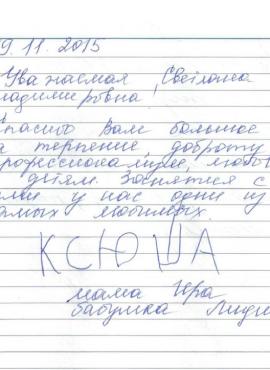 9.11.2015
Уважаемая Светлана
ладимировна.
пасибо Вам большое
а терпение, доброту
рофессионализм, любов
детям. Занятия с
ами у нас одни из
амых любимых.
КСЮША
мама Ира
бабушка